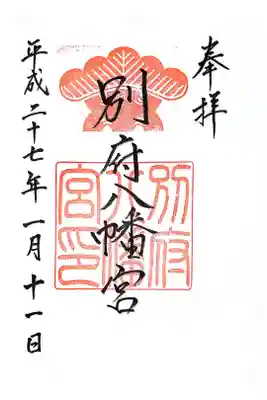 奉拝
別府八幡宮
別府八幡宮印
平成二十七年一月十一日